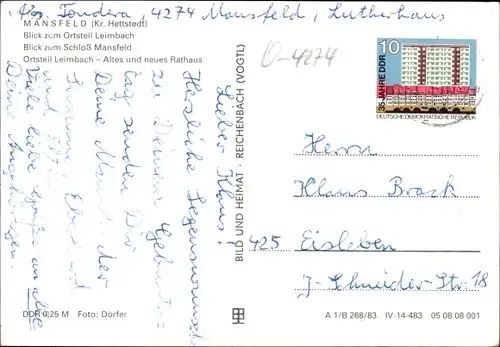 Abs. Tondera, 4274 Mansfeld, Lutherhaus
MANSFELD (Kr. Hettstedt)
Blick zum Ortsteil Leimbach
Blick zum Schloß Mansfeld
Ortsteil Leimbach – Altes und neues Rathaus
O-4274
10
35 JAHRE DDR
DEUTSCHE DEMOKRATISCHE REPUBLIK
Lieber Klaus!
Herzliche Segenswünsche
zu Deinem Geburts=
tag senden Dir
Deine Mansfelder
und
Viele liebe Grüße an alle
Deine Angehörigen.
BILD UND HEIMAT · REICHENBACH (VOGTL)
Herrn
Klaus Brack
425 Eisleben
J.-Schneider-Str. 18
DDR 0,25 M Foto: Dörfer
A 1/B 268/83 IV-14-483 05 08 08 001